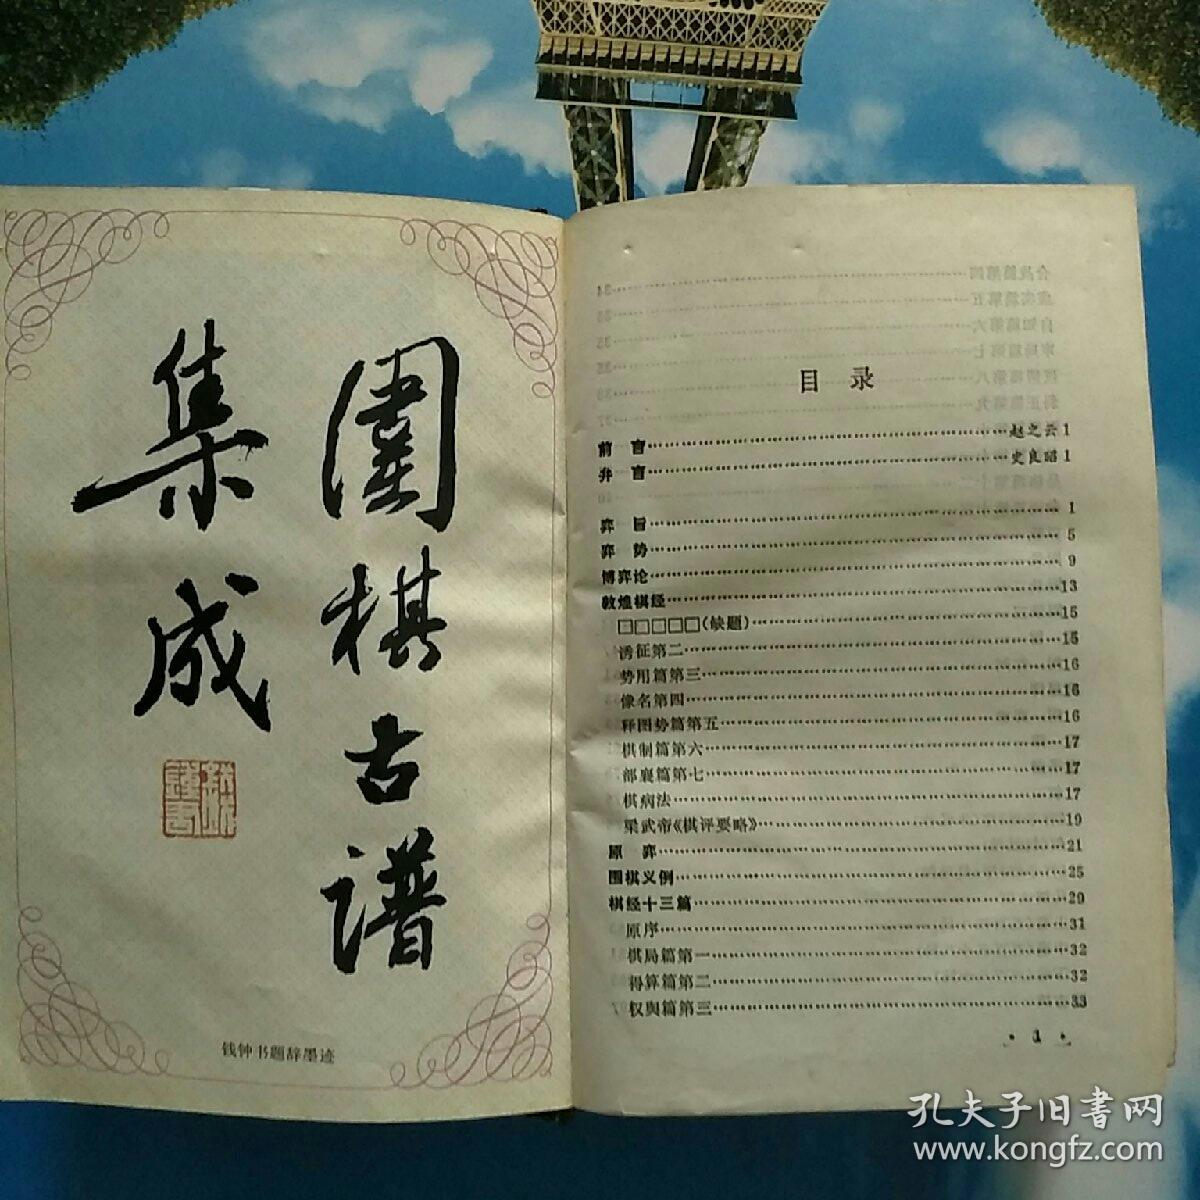 圍棋古谱
集成
钱钟书题辞墨迹
目 录
前 言……赵之云 1
弁 言……史良昭 1
弈 旨……1
弈 势……5
博弈论……9
敦煌棋经……13
□□□□□(缺题)……15
诱征第二……15
势用篇第三……16
像名第四……16
释图势篇第五……16
棋制篇第六……17
部襄篇第七……17
棋病法……17
梁武帝《棋评要略》……19
原 弈……21
围棋义例……25
棋经十三篇……29
原序……31
棋局篇第一……32
得算篇第二……32
权舆篇第三……33
· 1 ·
孔夫子旧書网
www.kongfz.com